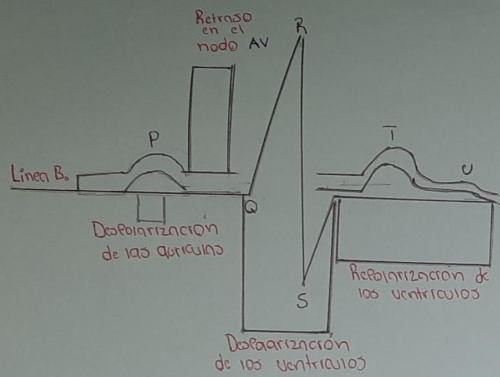 Retraso
en el
nodo AV
R
P
T
U
Linea B.
Q
Despolarización
de las aurículas
S
Repolarización de
los ventrículos
Despolarización
de los ventrículos